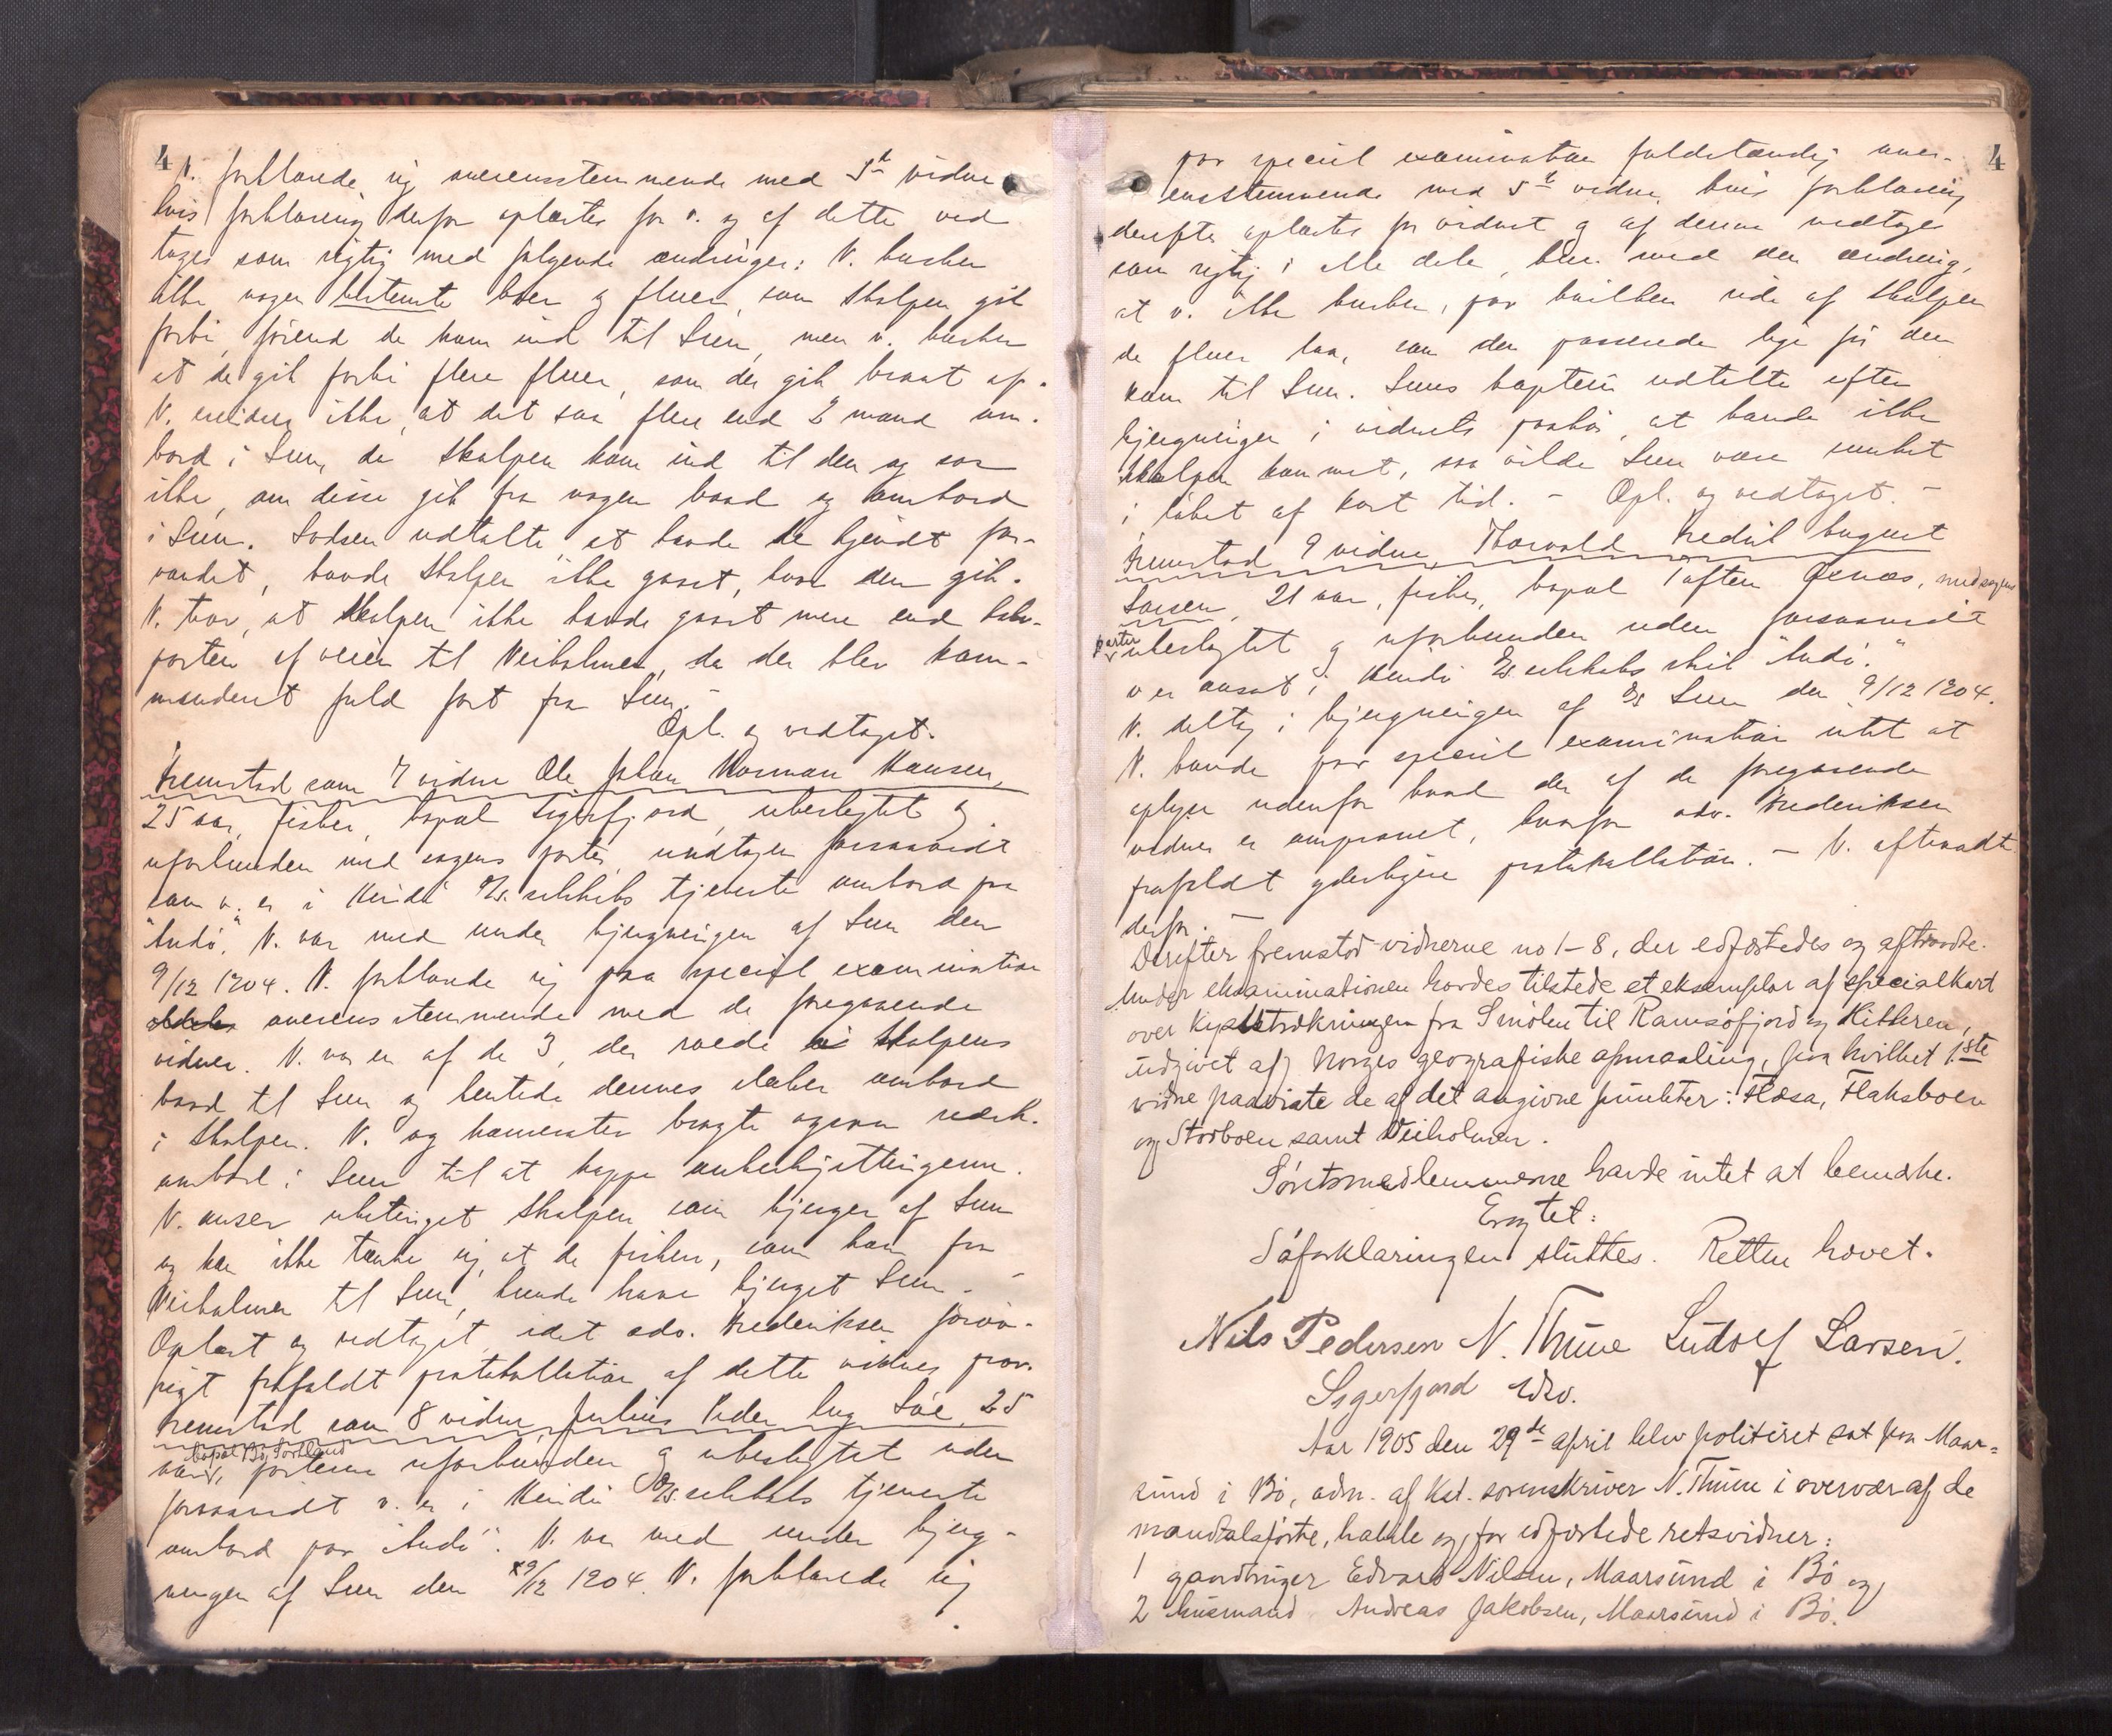 4
V. forklarede sig overensstemmende med 5te vidne
hvis forklaring derfor oplæstes for v. og af dette ved
toges som rigtig med følgende ændringer: V. husker
ikke nogen bestemte boer og fluer, som Skolpen gik
forbi, førend de kom ind til Sun, men v. husker
at de gik forbi flere fluer, som der gik braat af.
V. erindrer ikke, at det saa flere end 2 mand om-
bord i Sun, da Skolpen kom ind til den og saa
ikke, om disse gik fra nogen baad og ombord
i Sun. Lodsen udtalte at havde de kjendt far-
vandet, havde Skolpen ikke gaaet, hvor den gik.
V. tror, at Skolpen ikke havde gaaet mere end halv-
parten af veien til Veiholmen, da der blev kom-
manderet fuld fart fra Sun. -
Opl. og vedtaget.
Fremstod som 7 vidne Ole Johan Norman Hansen,
25 aar, fisker, bopæl Sigerfjord, ubeslegtet og
uforbunden med sagens parter, undtagen forsaavidt
som v. er i Hindø Ds. selskabs tjeneste ombord paa
"Andø". V. var med under bjergningen af Sun den
9/12 1904. V. forklarede sig paa speciel examination
overensstemmende med de foregaaende
vidner. V. var en af de 3, der roede i Skolpens
baad til Sun og hentede dennes slaber ombord
i Skolpen. V. og kamerater bragte ogsaa redsk.
ombord i Sun til at kappe ankerkjettingerne.
V. anser ubetinget Skolpen som bjerger af Sun
og kan ikke tænke sig, at de fiskere, som kom fra
Veiholmen til Sun, kunde have bjerget Sun. -
Oplæst og vedtaget, idet adv. Frederiksen forøv-
rigt frafaldt protokollation af dette vidnes prov.
Fremstod som 8 vidne Julius Peder Aug Söe, 25
bopæl Bø, Sortland
aar, parterne uforbunden og ubeslegtet uden
forsaavidt v. er i Hindø Ds. selskabs tjeneste
ombord paa "Andø". V. var med under bjerg-
ningen af Sun den 9/12 1904. V. forklarede sig
4
paa speciel examination fuldstændig over-
ensstemmende med 5te vidne, hvis forklaring
derefter oplæstes for vidnet og af denne vedtoges
som rigtig i alle dele, kun med den ændring,
at v. ikke husker, paa hvilken side af Skolpen
de fluer laa, som den passerede lige før den
kom til Sun. Suns kaptein udtalte efter
bjergningen i vidnets paahør, at havde ikke
Skolpen kommet, saa vilde Sun være sunket
i løbet af kort tid. - Opl. og vedtaget. -
Fremstod 9 vidne, Thorvald Fredrik August
Larsen, 21 aar, fisker, bopæl Toften Øxnæs, med sagens
parter
ubeslegtet og uforbunden uden forsaavidt
v er ansat i Hindø Ds. selskabs skib "Andø."
V. deltog i bjergningen af Ds Sun den 9/12 1904.
V. havde paa speciel examination intet at
oplyse udenfor hvad der af de foregaaende
vidner er omprovet, hvorfor adv. Frederiksen
frafaldt yderligere protokollation. - V. aftraadte
derfor. -
Derefter fremstod vidnerne no 1-8, der edfæstedes og aftraadte.
Under eksaminationen havdes tilstede et eksemplar af specialkart
over kyststrækningen fra Smølen til Ramsöfjord og Hitteren,
udgivet af Norges geografiske opmaaling, paa hvilket 1ste
vidne paaviste de af det angivne punkter: Flæsa, Flaksboen
og Storboen samt Veiholmen.
Søretsmedlemmerne havde intet at bemærke.
Eragtet:
Søforklaringen sluttes. Retten hævet.
Nils Pedersen N. Thiine Ludolf Larsen.
Sigerfjord
Aar 1905 den 29de april blev politiret sat paa Maar-
sund i Bø, adm. af kst. sorenskriver N. Thiine i overvær af de
mandtalsførte, habile og før edfæstede retsvidner:
1 gaardbruger Edvard Nilsen, Maarsund i Bø og
2 husmand Andreas Jakobsen, Maarsund i Bø.